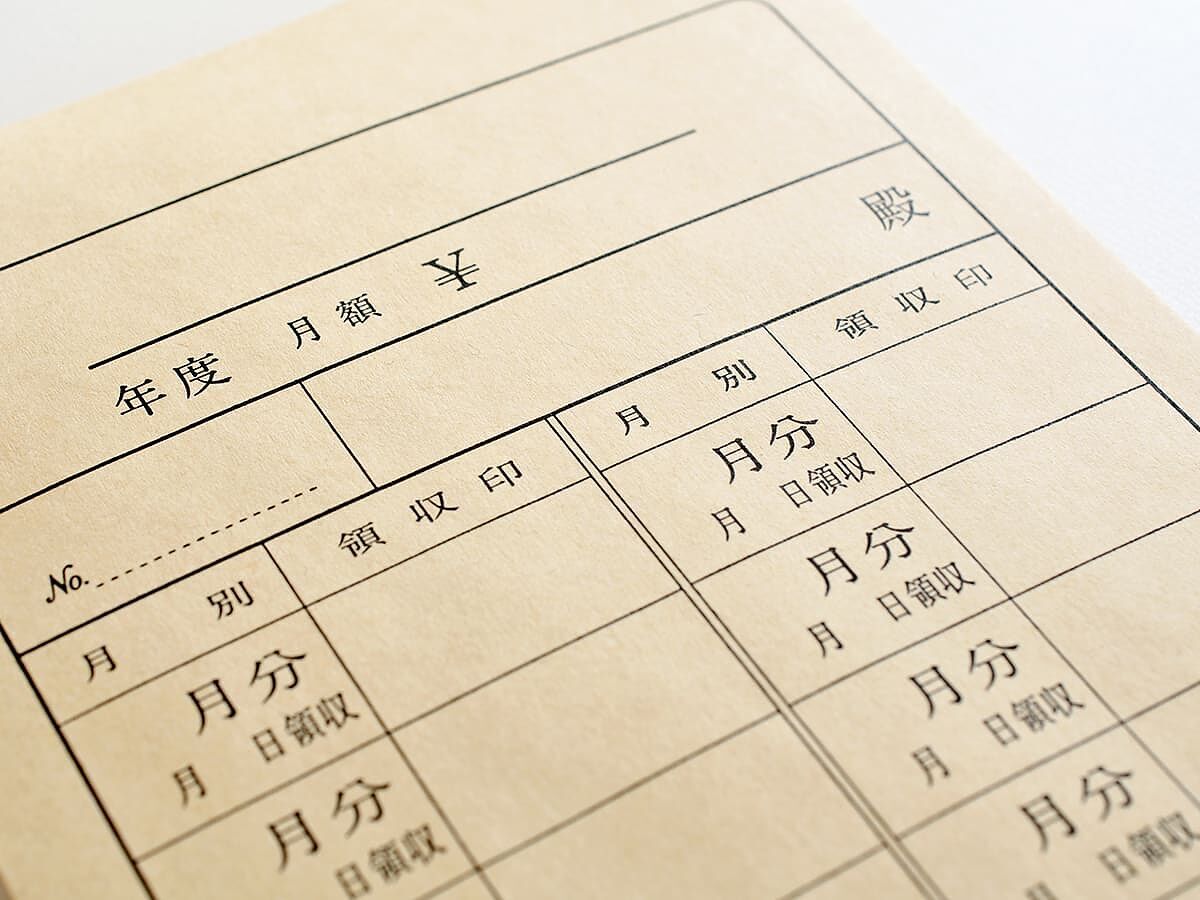 殿
年度 月額 ¥
No.
月別 領収印 月別 領収印
月分
月 日領収
月分
日領収
月分
月 日領収
月分
月 日領収
月分
月 日領収
月分
月 日領収